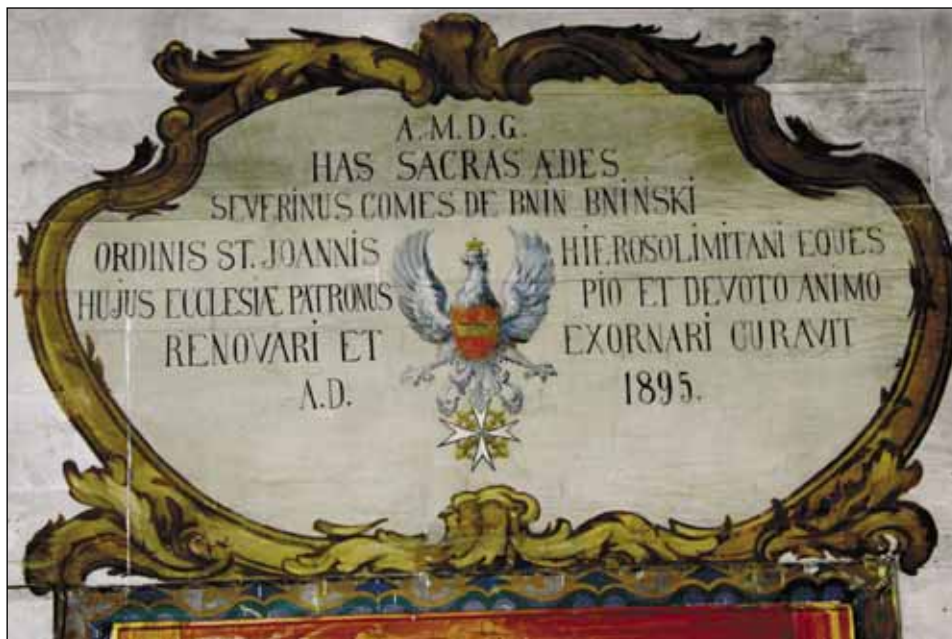 A.M.D.G.
HAS SACRAS ÆDES
SEVERINUS COMES DE BNIN BNIŃSKI
ORDINIS ST. JOANNIS HIEROSOLIMITANI EQUES
HUJUS ECCLESIÆ PATRONUS PIO ET DEVOTO ANIMO
RENOVARI ET EXORNARI CURAVIT
A.D. 1895.